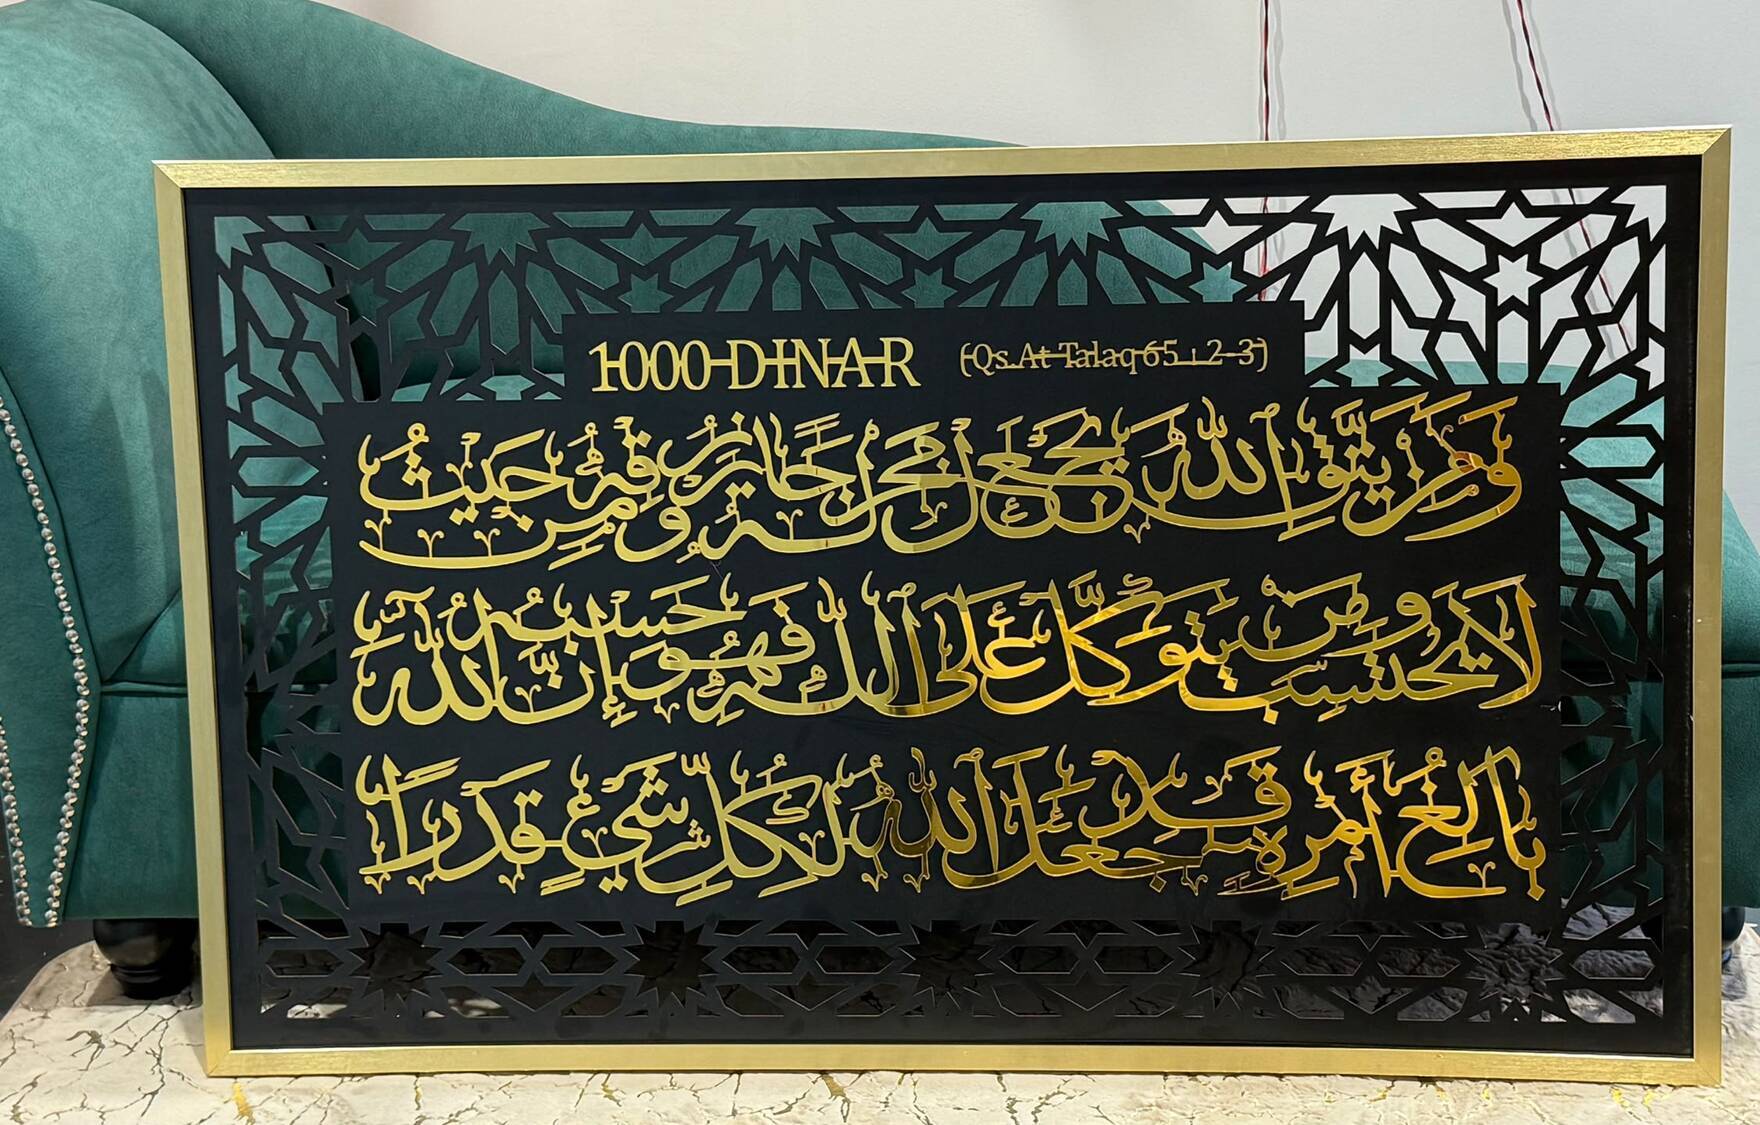 1000 DINAR (Qs. At Talaq 65 : 2-3)
وَمَن يَتَّقِ اللَّهَ يَجْعَل لَّهُ مَخْرَجًا وَيَرْزُقْهُ مِنْ حَيْثُ
لَا يَحْتَسِبُ وَمَن يَتَوَكَّلْ عَلَى اللَّهِ فَهُوَ حَسْبُهُ إِنَّ اللَّهَ
بَالِغُ أَمْرِهِ قَدْ جَعَلَ اللَّهُ لِكُلِّ شَيْءٍ قَدْرًا